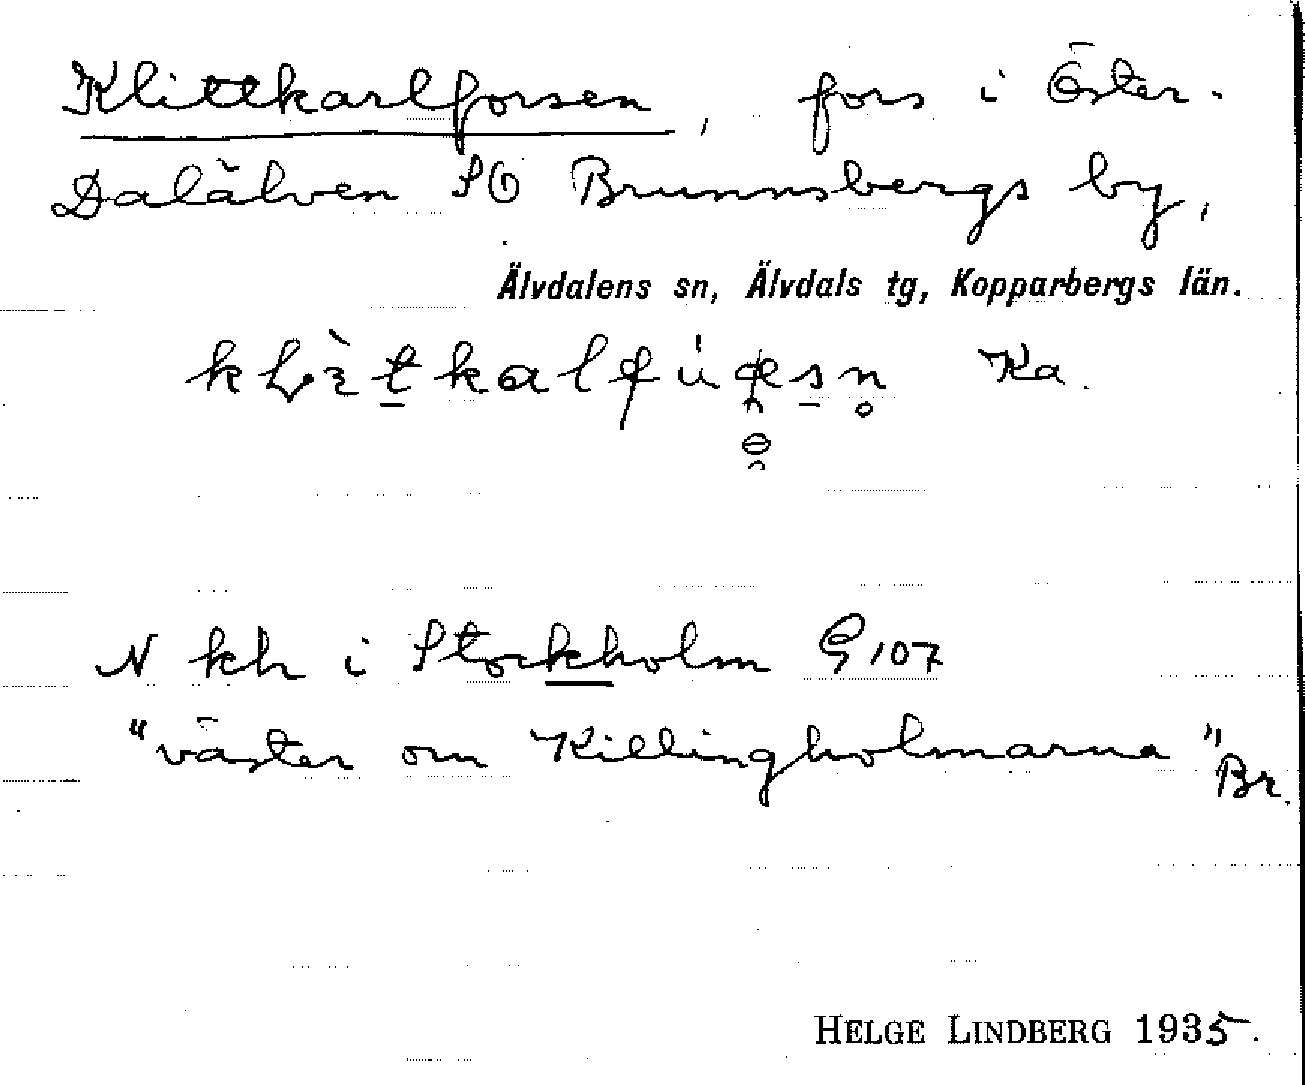 Klittkarlforsen, fors i Öster-
Dalälven SO Brunnsbergs by,
Älvdalens sn, Älvdals tg, Kopparbergs län.
Ka.
N kh i Stockholm G 107
"väster om Killingholmarna" Br.
HELGE LINDBERG 1935.